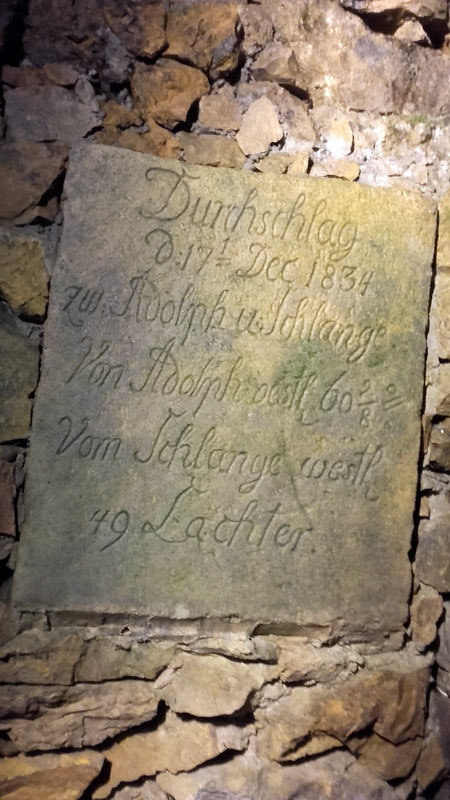 Durchschlag
d. 17t Dec 1834
zw. Adolph u. Schlange
Von Adolph westl 60 2/8
Vom Schlange westl
49 Lachter.